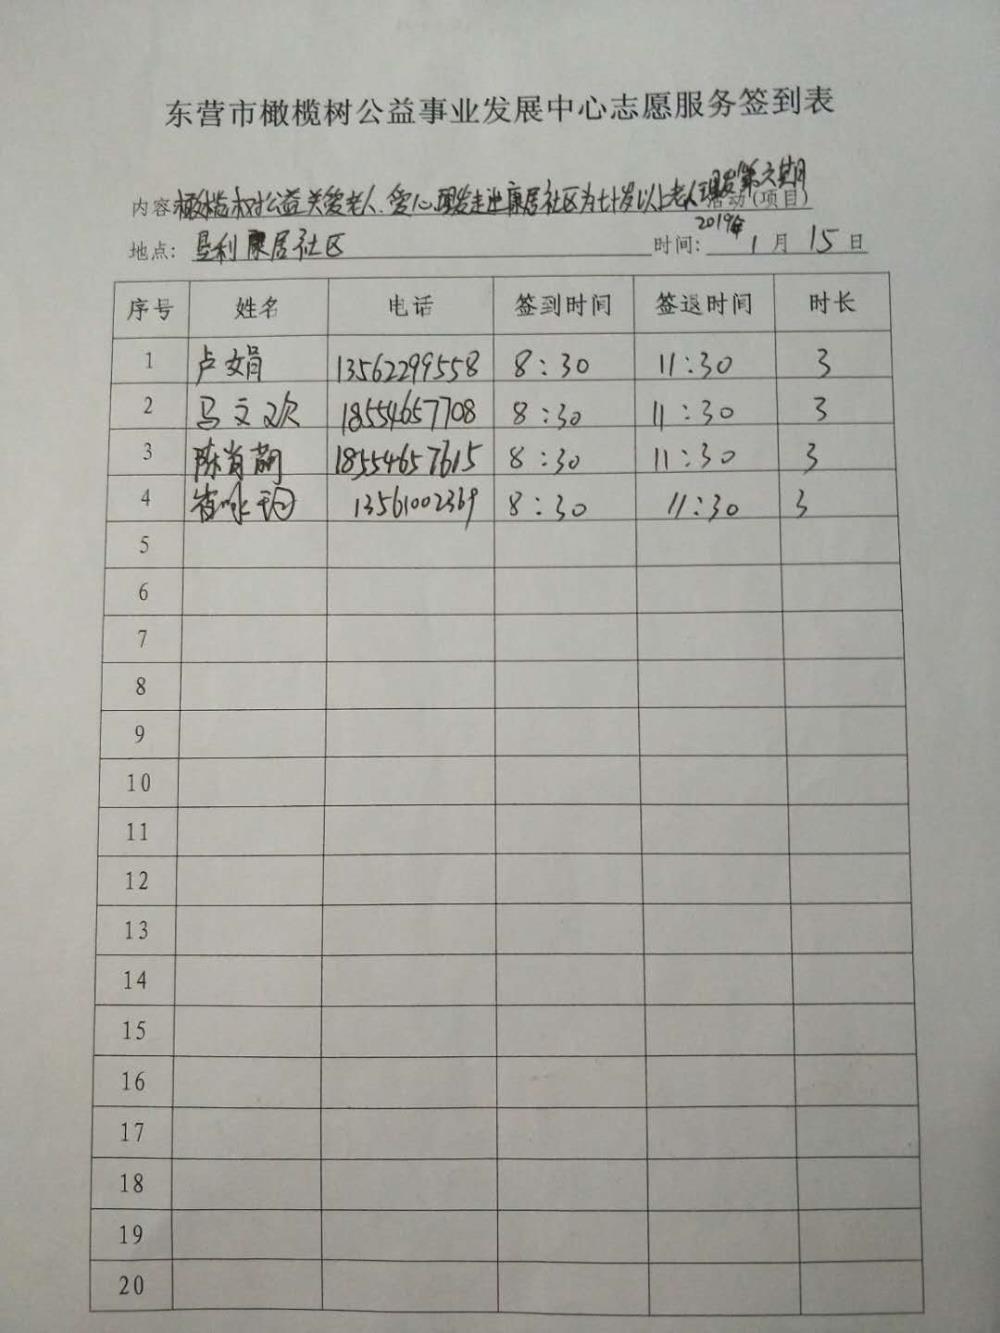 东营市橄榄树公益事业发展中心志愿服务签到表
内容:橄榄树公益关爱老人.爱心理发走进康居社区为七十岁以上老人理发第六期活动(项目)
地点:垦利康居社区 时间:2019年1月15日
序号 姓名 电话 签到时间 签退时间 时长
1 卢娟 13562299558 8:30 11:30 3
2 马文欢 18554657708 8:30 11:30 3
3 陈肖 18554657615 8:30 11:30 3
4 崔咏 13561002369 8:30 11:30 3
5
6
7
8
9
10
11
12
13
14
15
16
17
18
19
20